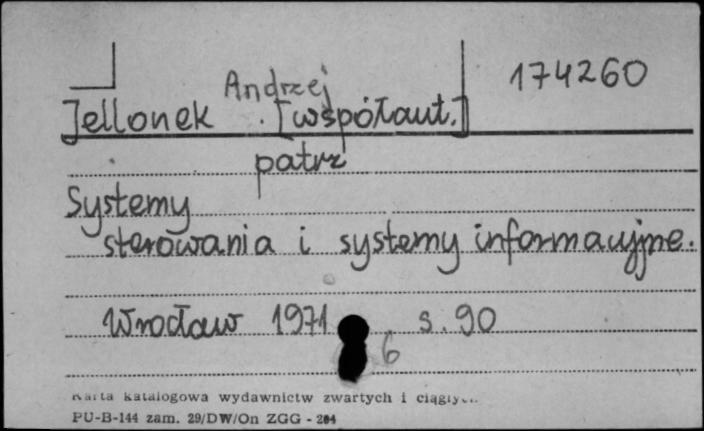 174260
Andrzej
Jellonek [współaut.]
patrz
Systemy
sterowania i systemy informacyjne.
Wrocław 1971 s. 90
6
Karta katalogowa wydawnictw zwartych i ciągłych
PU-B-144 zam. 29/DW/On ZGG - 204